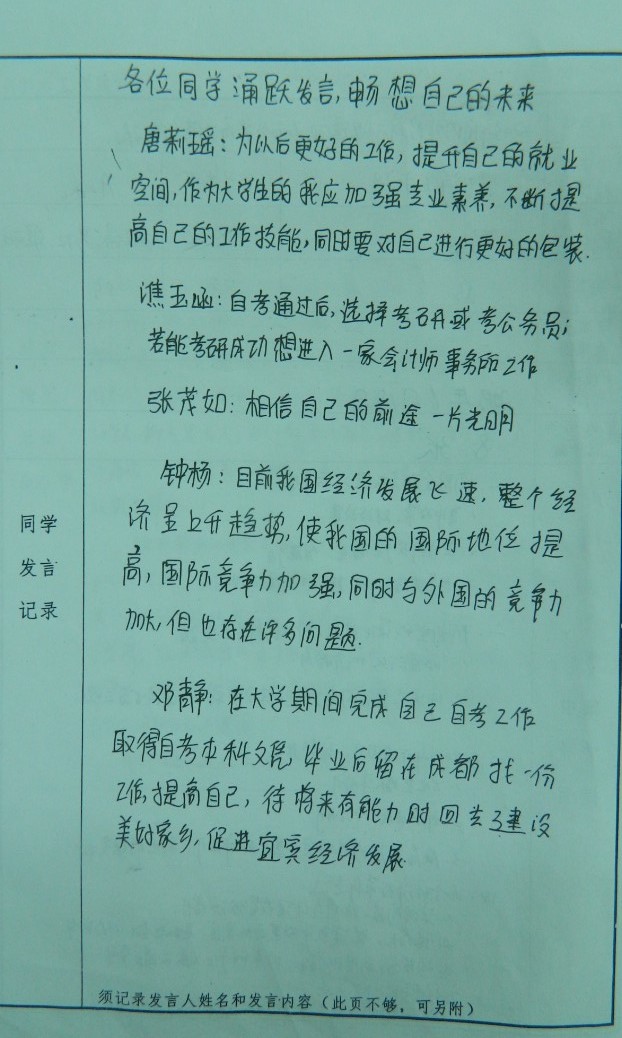 各位同学涌跃发言,畅想自己的未来
唐莉瑶:为以后更好的工作,提升自己的就业
空间,作为大学生的我应加强专业素养,不断提
高自己的工作技能,同时要对自己进行更好的包装.
谯玉涵:自考通过后,选择考研或考公务员;
若能考研成功想进入一家会计师事务所工作
张茂如:相信自己的前途一片光明
钟杨:目前我国经济发展飞速,整个经
济呈上升趋势,使我国的国际地位提
高,国际竞争力加强,同时与外国的竞争力
加大,但也存在许多问题.
邓静:在大学期间完成自己自考工作
取得自考本科文凭,毕业后留在成都找一份
工作,提高自己,待将来有能力时回去建设
美好家乡,促进宜宾经济发展.
同学
发言
记录
须记录发言人姓名和发言内容(此页不够,可另附)